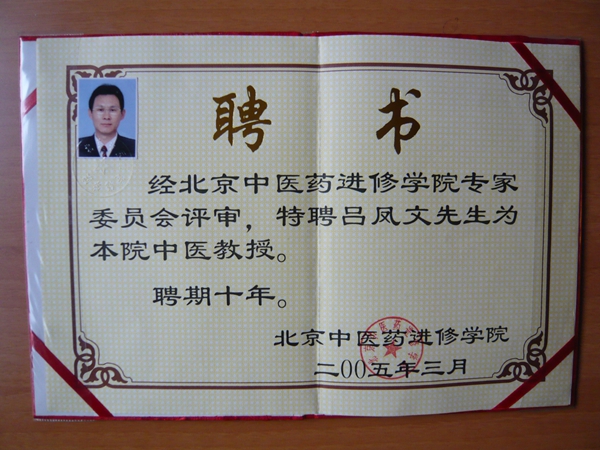 聘 书
经北京中医药进修学院专家
委员会评审，特聘吕凤文先生为
本院中医教授。
聘期十年。
北京中医药进修学院
二00五年三月